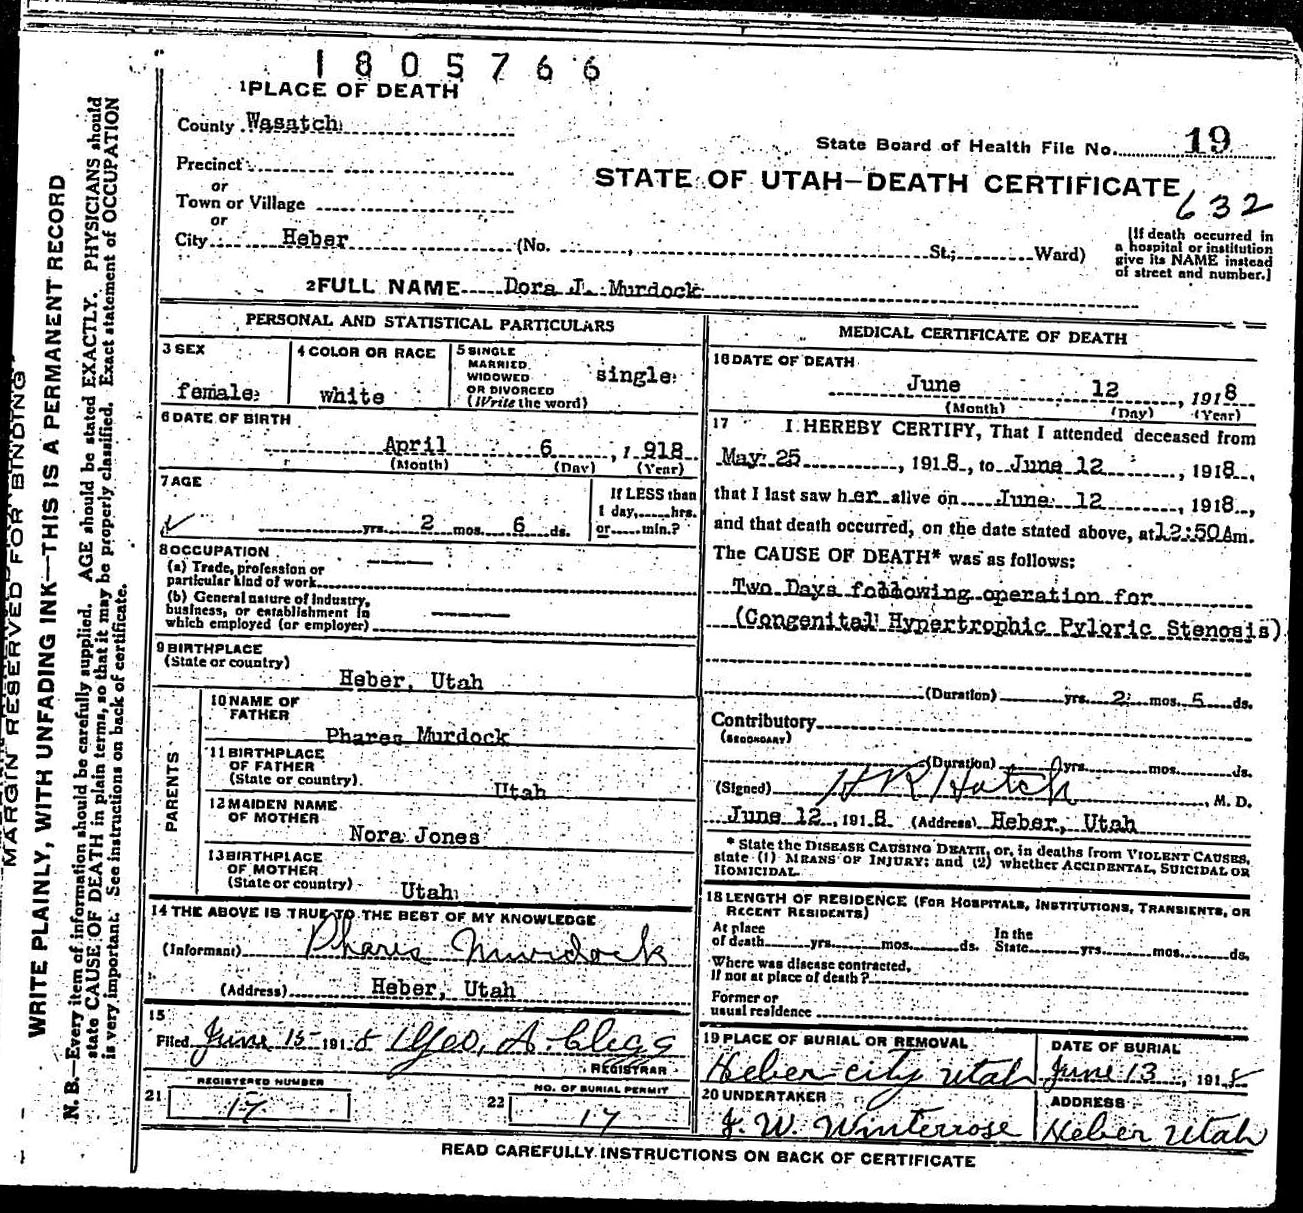 1805766
1 PLACE OF DEATH
County Wasatch
State Board of Health File No. 19
Precinct
or
STATE OF UTAH—DEATH CERTIFICATE
632
Town or Village
or
City Heber (No. , St.; Ward)
[If death occurred in
a hospital or institution
give its NAME instead
of street and number.]
2 FULL NAME Dora J. Murdock
PERSONAL AND STATISTICAL PARTICULARS
3 SEX
female
4 COLOR OR RACE
white
5 SINGLE
MARRIED
WIDOWED
OR DIVORCED
(Write the word)
single
6 DATE OF BIRTH
April 6, 1918
(Month) (Day) (Year)
7 AGE
yrs. 2 mos. 6 ds.
If LESS than
1 day, hrs.
or min.?
8 OCCUPATION
(a) Trade, profession or
particular kind of work
(b) General nature of Industry,
business, or establishment in
which employed (or employer)
9 BIRTHPLACE
(State or country)
Heber, Utah
PARENTS
10 NAME OF
FATHER
Phares Murdock
11 BIRTHPLACE
OF FATHER
(State or country)
Utah
12 MAIDEN NAME
OF MOTHER
Nora Jones
13 BIRTHPLACE
OF MOTHER
(State or country)
Utah
14 THE ABOVE IS TRUE TO THE BEST OF MY KNOWLEDGE
(Informant) Phares Murdock
(Address) Heber, Utah
15
Filed June 15 1918 Geo. A Clegg
REGISTRAR
REGISTERED NUMBER
21 17
NO. OF BURIAL PERMIT
22 17
MEDICAL CERTIFICATE OF DEATH
16 DATE OF DEATH
June 12, 1918
(Month) (Day) (Year)
17 I HEREBY CERTIFY, That I attended deceased from
May 25, 1918, to June 12, 1918,
that I last saw her alive on June 12, 1918,
and that death occurred, on the date stated above, at 12:50 Am.
The CAUSE OF DEATH* was as follows:
Two Days following operation for
(Congenital Hypertrophic Pyloric Stenosis)
(Duration) yrs. 2 mos. 5 ds.
Contributory
(SECONDARY)
(Duration) yrs. mos. ds.
(Signed) H R Hatch, M. D.
June 12, 1918 (Address) Heber, Utah
* State the DISEASE CAUSING DEATH, or, in deaths from VIOLENT CAUSES,
state (1) MEANS OF INJURY; and (2) whether ACCIDENTAL, SUICIDAL OR
HOMICIDAL.
18 LENGTH OF RESIDENCE (FOR HOSPITALS, INSTITUTIONS, TRANSIENTS, OR
RECENT RESIDENTS)
At place
of death yrs. mos. ds.
In the
State yrs. mos. ds.
Where was disease contracted,
If not at place of death?
Former or
usual residence
19 PLACE OF BURIAL OR REMOVAL
Heber city Utah
DATE OF BURIAL
June 13, 1918
20 UNDERTAKER
J. W. Winterrose
ADDRESS
Heber Utah
READ CAREFULLY INSTRUCTIONS ON BACK OF CERTIFICATE
MARGIN RESERVED FOR BINDING
WRITE PLAINLY, WITH UNFADING INK—THIS IS A PERMANENT RECORD
N. B.—Every item of information should be carefully supplied. AGE should be stated EXACTLY. PHYSICIANS should
state CAUSE OF DEATH in plain terms, so that it may be properly classified. Exact statement of OCCUPATION
is very important. See instructions on back of certificate.